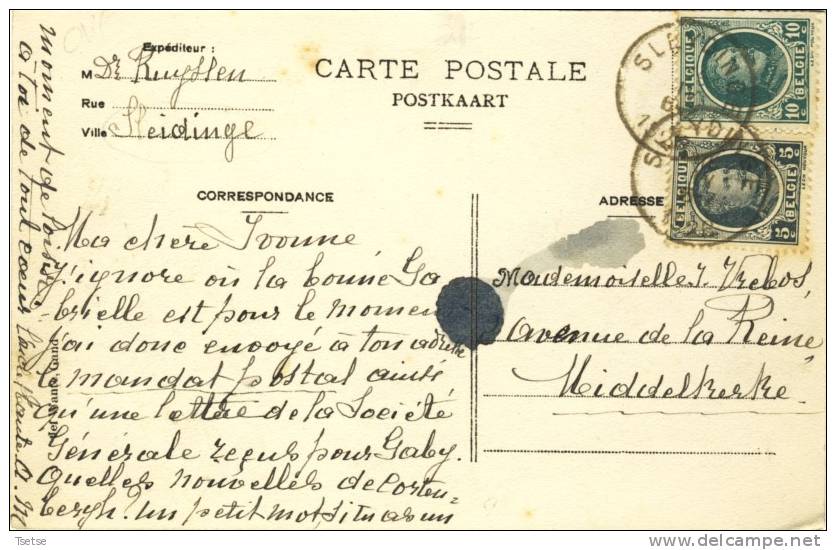 Expéditeur :
M Dr Ruyssen
Rue
Ville Sleidinge
CARTE POSTALE
POSTKAART
CORRESPONDANCE
ADRESSE
Ma chère Yvonne
J'ignore où la bonne Ga
brielle est pour le momen
j'ai donc envoyé à ton adresse
le mandat postal ainsi
qu'une lettre de la Société
Générale reçus pour Gaby.
Quelles nouvelles de Corten=
bergh? Un petit mot si tu as un
moment de loisir.
à toi de tout cœur
Mademoiselle Y. Vrebos,
avenue de la Reine,
Middelkerke.
BELGIQUE
10 c 10 c
BELGIE
BELGIQUE
5 c 5 c
BELGIE
Gand
delcampe.net